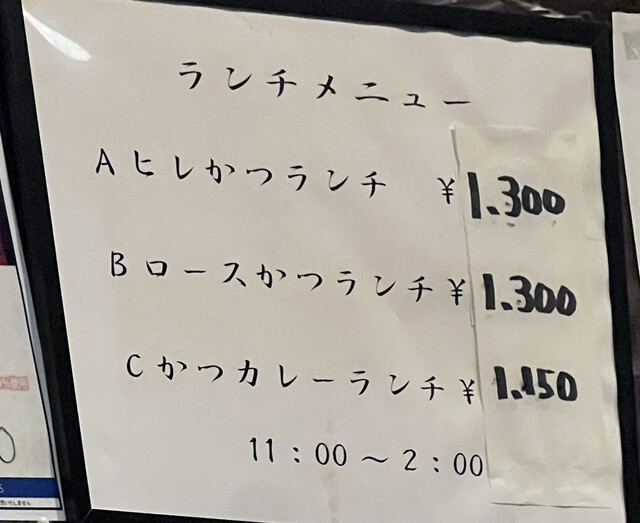 ランチメニュー
A ヒレかつランチ ¥1.300
B ロースかつランチ ¥1.300
C かつカレーランチ ¥1.150
11:00～2:00